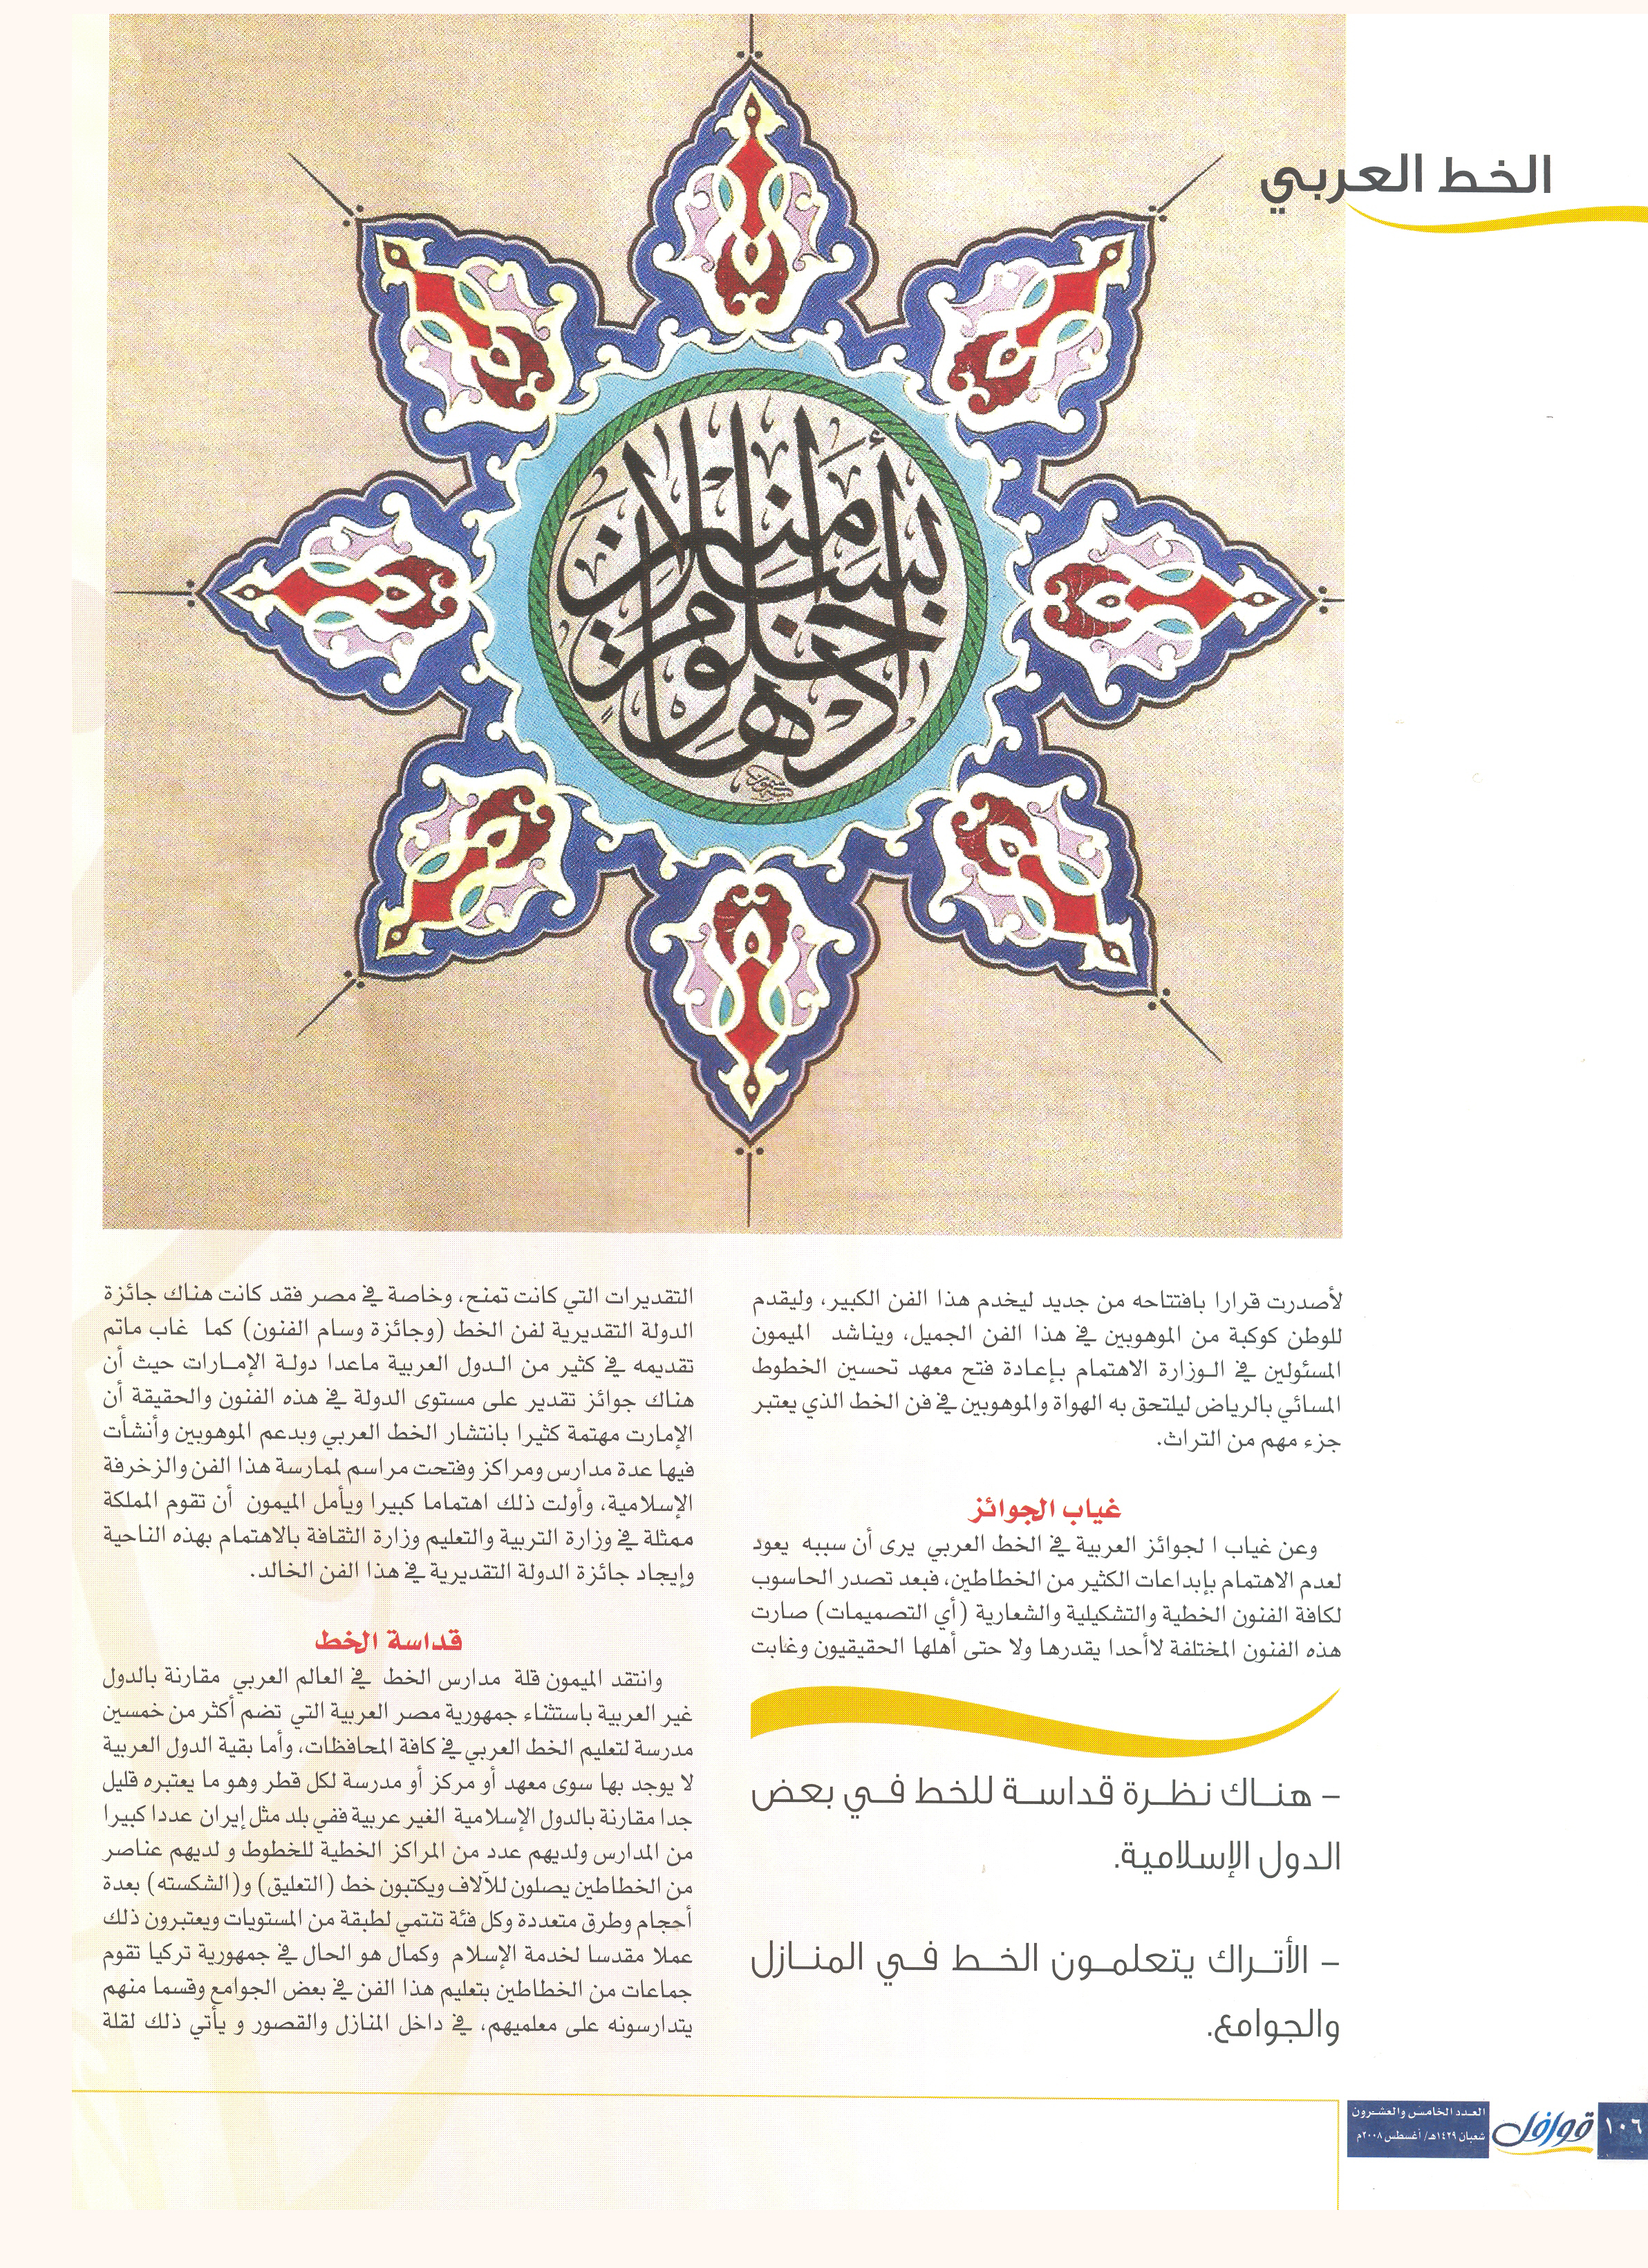 الخط العربي
ادخلوها بسلام آمنين
لأصدرت قرارا بافتتاحه من جديد ليخدم هذا الفن الكبير، وليقدم
للوطن كوكبة من الموهوبين في هذا الفن الجميل، ويناشد الميمون
المسئولين في الوزارة الاهتمام بإعادة فتح معهد تحسين الخطوط
المسائي بالرياض ليلتحق به الهواة والموهوبين في فن الخط الذي يعتبر
جزء مهم من التراث.
غياب الجوائز
وعن غياب ا لجوائز العربية في الخط العربي يرى أن سببه يعود
لعدم الاهتمام بإبداعات الكثير من الخطاطين، فبعد تصدر الحاسوب
لكافة الفنون الخطية والتشكيلية والشعارية (أي التصميمات) صارت
هذه الفنون المختلفة لاأحدا يقدرها ولا حتى أهلها الحقيقيون وغابت
– هناك نظرة قداسة للخط في بعض
الدول الإسلامية.
– الأتراك يتعلمون الخط في المنازل
والجوامع.
التقديرات التي كانت تمنح، وخاصة في مصر فقد كانت هناك جائزة
الدولة التقديرية لفن الخط (وجائزة وسام الفنون) كما غاب ماتم
تقديمه في كثير من الدول العربية ماعدا دولة الإمارات حيث أن
هناك جوائز تقدير على مستوى الدولة في هذه الفنون والحقيقة أن
الإمارت مهتمة كثيرا بانتشار الخط العربي وبدعم الموهوبين وأنشأت
فيها عدة مدارس ومراكز وفتحت مراسم لممارسة هذا الفن والزخرفة
الإسلامية، وأولت ذلك اهتماما كبيرا ويأمل الميمون أن تقوم المملكة
ممثلة في وزارة التربية والتعليم وزارة الثقافة بالاهتمام بهذه الناحية
وإيجاد جائزة الدولة التقديرية في هذا الفن الخالد.
قداسة الخط
وانتقد الميمون قلة مدارس الخط في العالم العربي مقارنة بالدول
غير العربية باستثناء جمهورية مصر العربية التي تضم أكثر من خمسين
مدرسة لتعليم الخط العربي في كافة المحافظات، وأما بقية الدول العربية
لا يوجد بها سوى معهد أو مركز أو مدرسة لكل قطر وهو ما يعتبره قليل
جدا مقارنة بالدول الإسلامية الغير عربية ففي بلد مثل إيران عددا كبيرا
من المدارس ولديهم عدد من المراكز الخطية للخطوط و لديهم عناصر
من الخطاطين يصلون للآلاف ويكتبون خط (التعليق) و(الشكسته) بعدة
أحجام وطرق متعددة وكل فئة تنتمي لطبقة من المستويات ويعتبرون ذلك
عملا مقدسا لخدمة الإسلام وكمال هو الحال في جمهورية تركيا تقوم
جماعات من الخطاطين بتعليم هذا الفن في بعض الجوامع وقسما منهم
يتدارسونه على معلميهم، في داخل المنازل والقصور و يأتي ذلك لقلة
١٠٦
قوافل
العدد الخامس والعشرون
شعبان ١٤٢٩هـ/ أغسطس ٢٠٠٨م